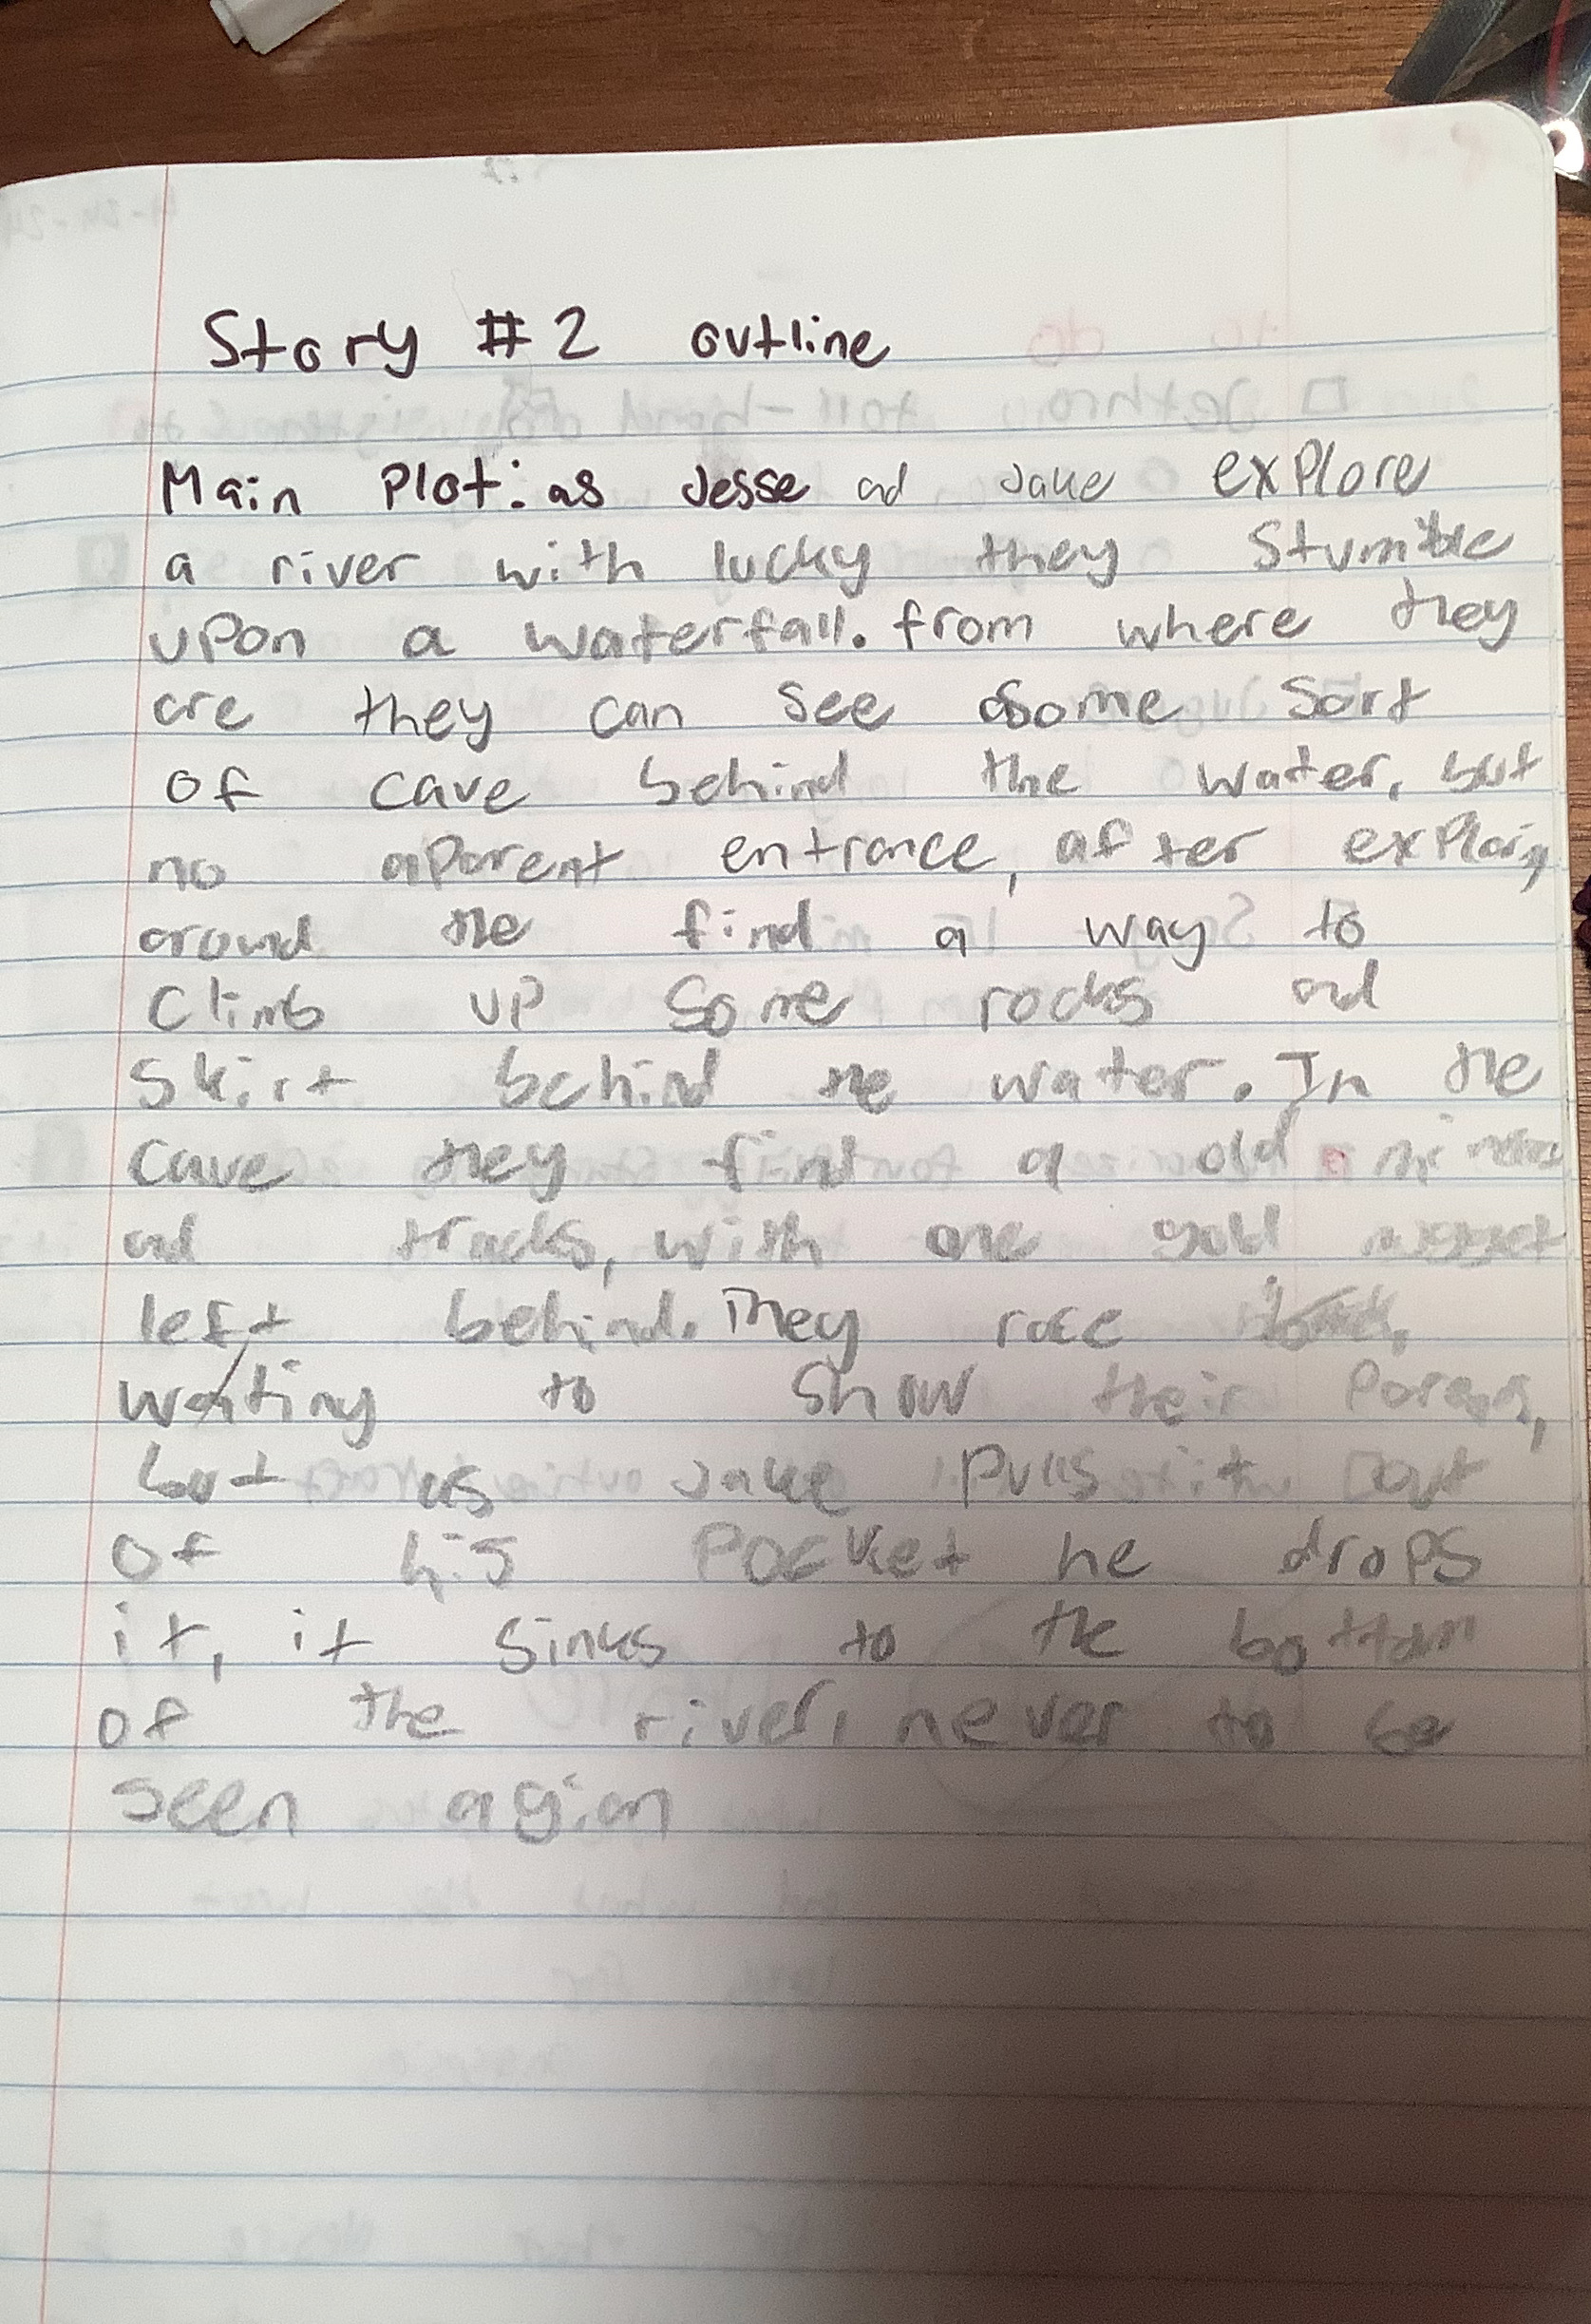 Story #2 outline
Main Plot: as Jesse ad Jake explore
a river with lucky they Stumble
upon a waterfall. from where they
are they can see some sort
of cave behind the water, but
no aparent entrance, after
around the find a way to
climb up some rocks ad
skirt behind the water. In the
cave they find a old
ad tracks, with one gold nugget
left behind. They race
to show their
but as Jake pulls it out
of his pocket he drops
it, it sinks to the bottom
of the river, never to be
seen agian